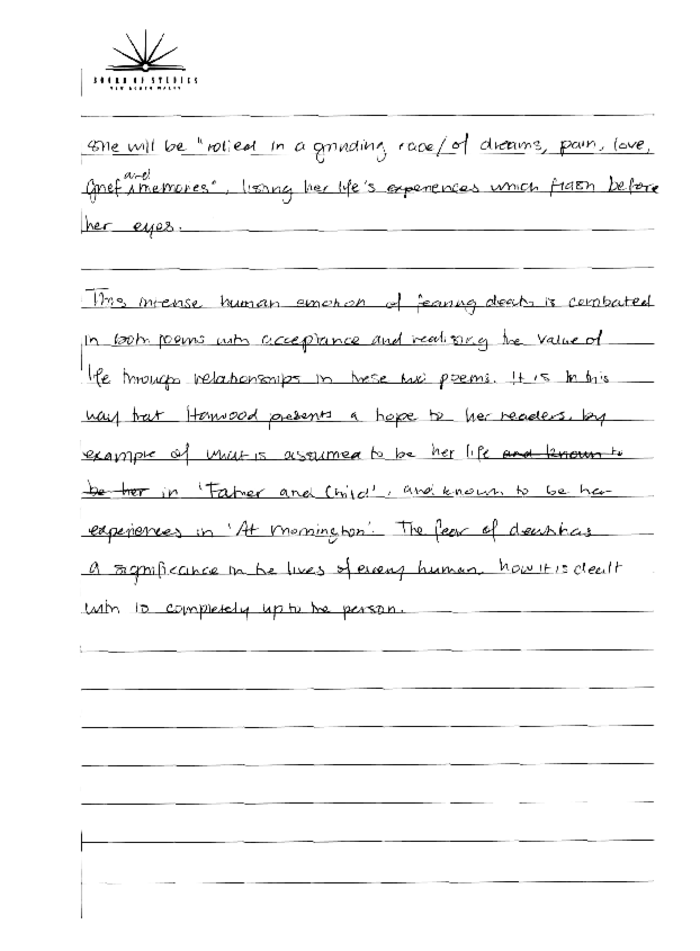 BOARD OF STUDIES
NEW SOUTH WALES
She will be "rolled in a grinding race/of dreams, pain, love,
grief and memories", listing her life's experiences which flash before
her eyes.
This intense human emotion of fearing death is combated
in both poems with acceptance and realising the value of
life through relationships in these two poems. It is in this
way that Harwood presents a hope to her readers, by
example of what is assumed to be her life and known to
be her in 'Father and Child', and known to be her
experiences in 'At Mornington'. The fear of death has
a significance in the lives of every human, how it is dealt
with is completely up to the person.